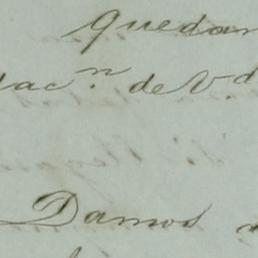 quedan
dac.n de V.d
Damos